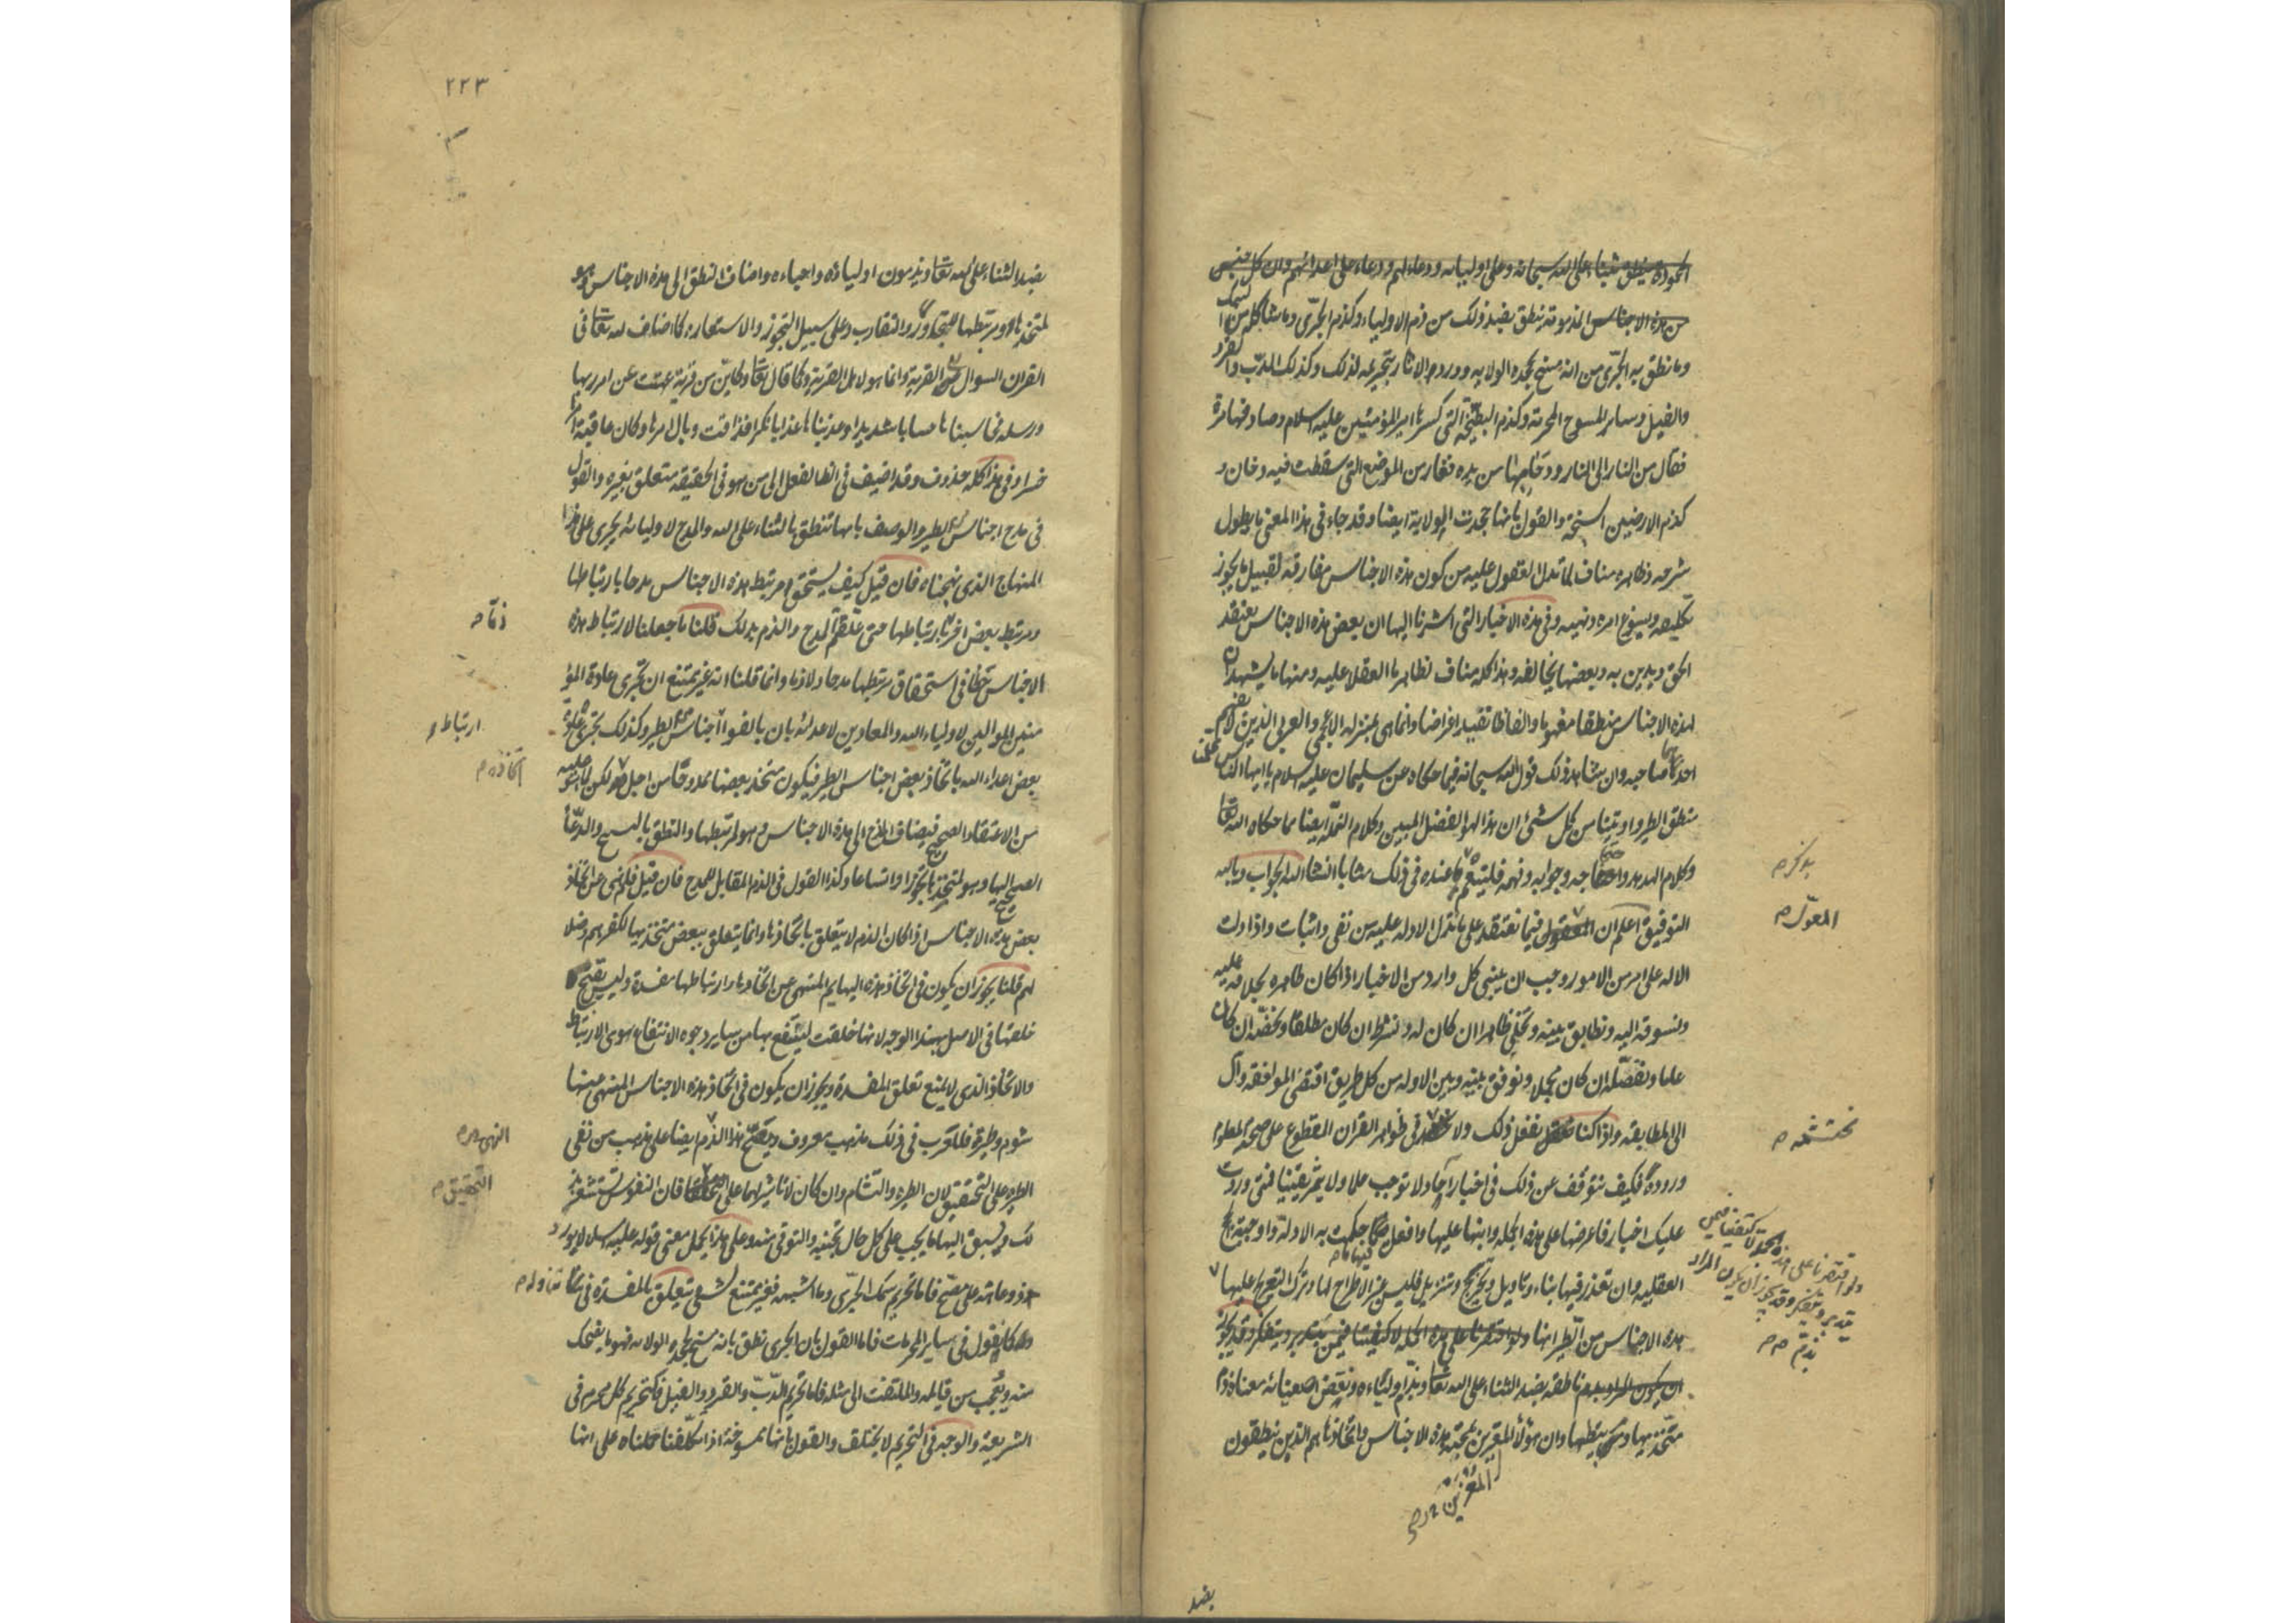 المحمودة ينطق بثناء على الله سبحانه وعلى اوليائه ودعاء لهم ودعاء على اعدائهم وان كل جنس
من هذه الاجناس المذمومة ينطق بضد ذلك من ذم الاولياء وكذم الجرّى وما شاكله من السمك
وما نطق به الجرّى من انه مسخ بجحده الولاية وورود الاثار بتحريمه لذلك وكذلك الدبّ والقرد
والفيل وساير المسوخ المحرمة وكذم البطيخة التى كسرها امير المؤمنين عليه السلام وصادفها مرة
فقال من النار الى النار ودحا بها من يده ففار من الموضع التى سقطت فيه دخان و
كذم الارضين السبخة والقول بانها جحدت الولاية ايضا وقد جاء فى هذا المعنى ما يطول
شرحه وظاهره مناف لما تدل العقول عليه من كون هذه الاجناس مفارقة لقبيل ما يجوز
تكليفه ويسوغ امره ونهيه وفى هذه الاخبار التى اشرنا اليها ان بعض هذه الاجناس يعتقد
الحق ويدين به وبعضها يخالفه وهذا كله مناف لظاهر ما العقلا عليه ومنها ما يشهد ان
لهذه الاجناس منطقا مفهوما والفاظا تفيد اغراضا وانما هى بمنزلة الاعجمى والعربى الذين لا يفهم
احدهما صاحبه وان شاهد ذلك قول الله سبحانه فيما حكاه عن سليمان عليه سلام يا ايها الناس علمنا
منطق الطير واوتينا من كل شىء ان هذا لهو الفضل المبين وكلام النملة ايضا مما حكاه الله تعا
وكلام الهدهد واحتجاجه وجوابه وفهمه فلينعم بذكر ما عنده فى ذلك مثابا انشا الله الجواب وبالله
التوفيق اعلم ان المعوّل فيما نعتقد على ما تدل الادلة عليه من نفى واثبات واذا دلت
الادلة على امر من الامور وجب ان يبنى كل وارد من الاخبار اذا كان ظاهره بخلافه عليه
ونسوقه اليه ونطابق بينه وبينه ونخلى ظاهرا ان كان له ونشرط ان كان مطلقا ونخصّه ان كان
عاما ونفصّله ان كان مجملا ونوفق بينه وبين الادلة من كل طريق اقتضى الموافقة وآل
الى المطابقة واذا كنا نفعل ذلك ولا نحتشمه فى ظواهر القران المقطوع على صحته المعلوم
وروده فكيف نتوقف عن ذلك فى اخبار آحاد لا توجب علما ولا يثمر يقينا فمتى وردت
عليك اخبار فاعرضها على هذه الجملة وابنها عليها وافعل فيها ما حكمت به الادلة واوجبته الحجج
العقلية وان تعذر فيها بناء وتاويل وتخريج وتنزيل فليس غير الاطراح لها وترك التعريج عليها
هذه الاجناس من الطير انها ولو اقتصرنا على هذه الجملة لاكتفينا فيمن يتدبر ويتفكر وقد يجوز
ان يكون المراد بذم ناطقه بضد الثناء على الله تعا وبذم اوليائه ونقص اصفيائه معناه ذم
متخذيها ومرتبطيها وان هؤلاء المغرين بمحبة هذه الاجناس واتخاذها هم الذين ينطقون
بذكر م
المعوّل م
نحتشمه م
ولو اقتصرنا على هذه الجملة لاكتفينا فيمن
يتدبر ويتفكر وقد يجوز ان يكون المراد
بذم م م
المغرين
بضد
٢٢٣
بضد الثناء على الله تعا ويذمون اولياءه واحباءه واضاف النطق الى هذه الاجناس وهو
لمتخذيها ومرتبطيها للتجاور والتقارب وعلى سبيل التجوز والاستعارة كما اضاف لله تعا فى
القران السوال الى القرية وانما هو لاهل القرية وكما قال تعا وكاين من قرية عتت عن امر ربها
ورسله فحاسبناها حسابا شديدا وعذبناها عذابا نكرا فذاقت وبال امرها وكان عاقبة امرها
خسرا وفى هذا كله حذوف وقد اضيف فى الظ الفعل الى من هو فى الحقيقة متعلق بغيره والقول
فى مدح اجناس الطير والوصف بانها تنطق بالثناء على الله والمدح لاوليائه يجرى على هذا
المنهاج الذى نهجناه فان قيل كيف يستحق مرتبط هذه الاجناس مدحا بارتباطها
ومرتبط بعض اخر ذمّا بارتباطها حتى علقتم المدح والذم بذلك قلنا ما جعلنا لارتباط هذه
الاجناس حظا فى استحقاق مرتبطيها مدحا ولا ذما وانما قلنا انه غير ممتنع ان تجرى عادة المؤ
منين الموالين لاولياء الله والمعادين لاعدائه بان يالفوا اجناس من الطير وكذلك تجرى عادة
بعض اعداء الله باتخاذ بعض اجناس الطير فيكون متخذ بعضها ممدوحا لا من اجل اتخاذه لكن لما هو عليه
من الاعتقاد الصحيح فيضاف المدح الى هذه الاجناس وهو لمرتبطها والنطق بالتسبيح والدعاء
الصحيح اليها وهو لمتخذها تجوزا واتساعا وكذا القول فى الذم المقابل للمدح فان قيل فلم نهى عن اتخاذ
بعض هذه الاجناس اذا كان الذم لا يتعلق باتخاذها وانما يتعلق ببعض متخذيها لكفرهم وضلا
لهم قلنا يجوز ان يكون فى اتخاذ هذه البهايم المنهى عن اتخاذها وارتباطها مفسدة وليس يقبح
خلقها فى الاصل لهذا الوجه لانها خلقت لينتفع بها من ساير وجوه الانتفاع سوى الارتباط
والاتخاذ الذى لا يمنع تعلق المفسدة ويجوز ان يكون فى اتخاذ هذه الاجناس المنهى عنها
شوم وطيرة فللعرب فى ذلك مذهب معروف ويصح هذا النهى ايضا على مذهب من نفى
الطيرة على التحقيق لان الطيرة والتشام وان كان لا تاثير لهما على التحقيق فان النفوس تستشعر ذ
لك ويسبق اليها ما يجب على كل حال تجنبه والتوقى منه وعلى هذا يحمل معنى قوله عليه السلام لا يورد
ذو عاهة على مصحّ فاما تحريم سمك الجرّى وما اشبهه فغير ممتنع لشىء يتعلق بالمفسدة فى تناوله
كما نقول فى ساير المحرمات فاما القول بان الجرى نطق بانه مسخ بجحده الولاية فهو مما يضحك
منه ويتعجب من قايله والملتفت الى مثله فاما تحريم الدبّ والقرد والفيل فكتحريم كل محرم فى
الشريعة والوجه فى التحريم لا يختلف والقول بانها ممسوخة اذا تكلفنا حملناه على انها
ذمّا م
ارتباط و
اتخاذه م
النهى م
التحقيق م
تناوله م